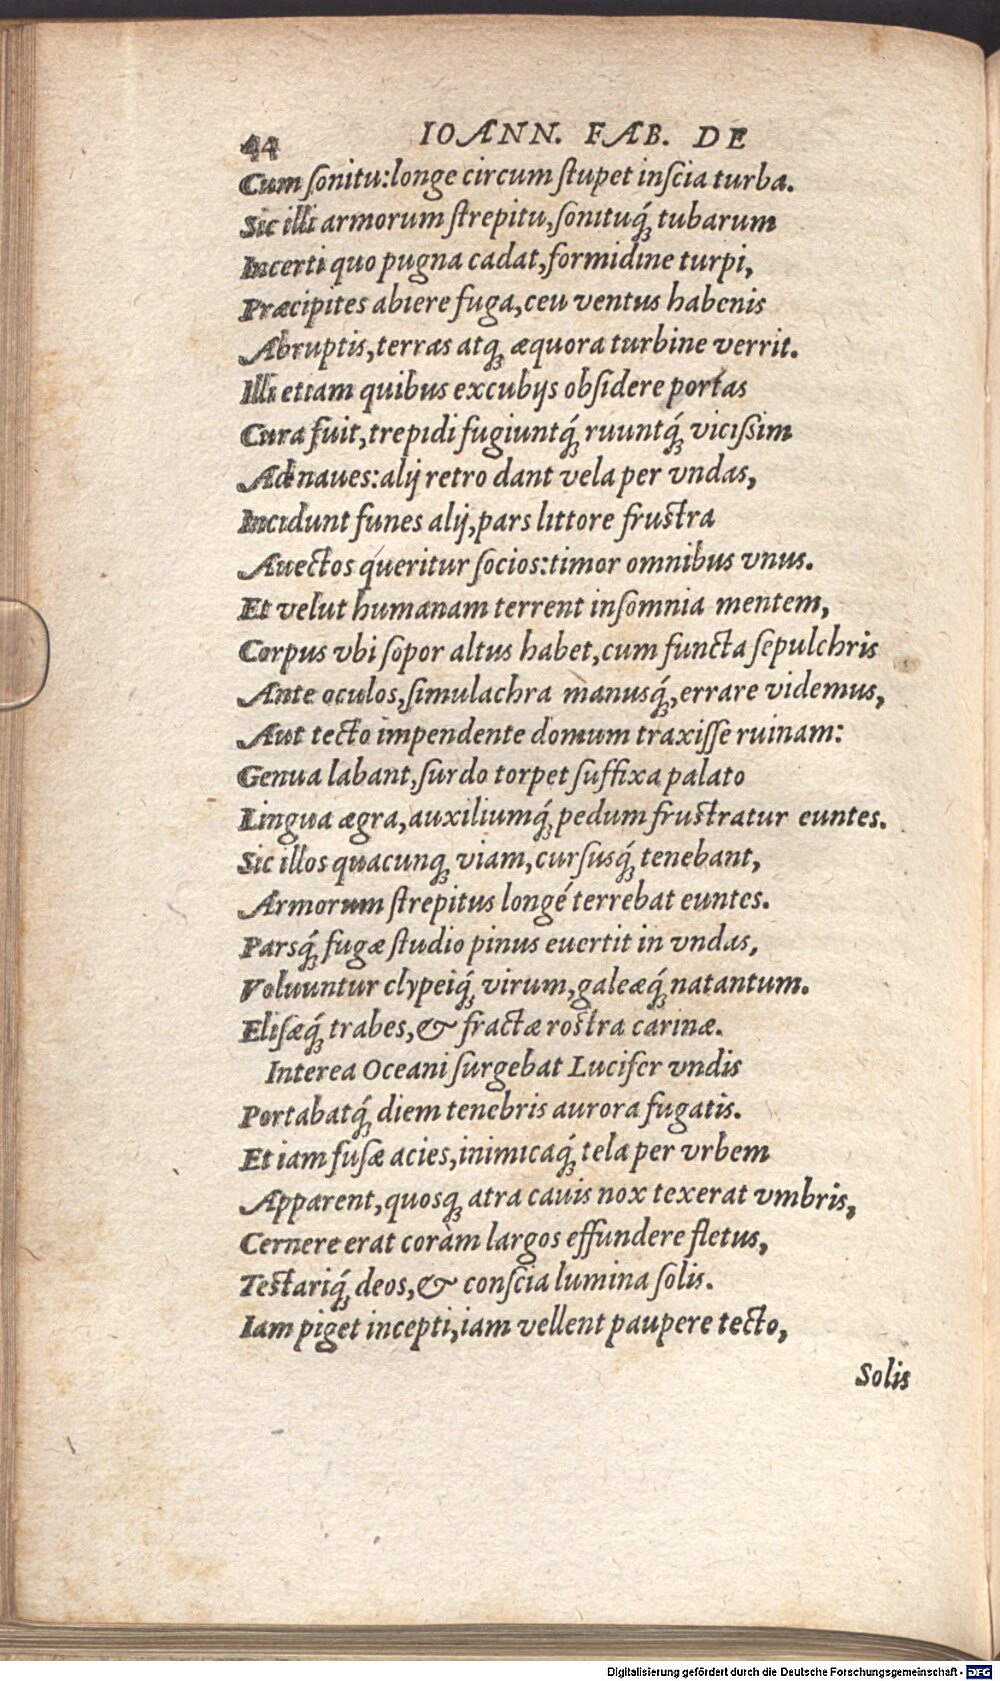 44 IOANN. FAB. DE
Cum ſonitu:longe circum ſtupet inſcia turba.
Sic illi armorum ſtrepitu,ſonituq́ꝫ tubarum
Incerti quo pugna cadat,formidine turpi,
Præcipites abiere fuga,ceu ventus habenis
Abruptis,terras atqꝫ æquora turbine verrit.
Illi etiam quibus excubijs obſidere portas
Cura fuit,trepidi fugiuntq́ꝫ ruuntq́ꝫ viciſsim
Ad naues:alij retro dant vela per vndas,
Incidunt funes alij,pars littore fruſtra
Auectos queritur ſocios:timor omnibus vnus.
Et velut humanam terrent inſomnia mentem,
Corpus vbi ſopor altus habet,cum functa ſepulchris
Ante oculos,ſimulachra manusq́ꝫ,errare videmus,
Aut tecto impendente domum traxiſſe ruinam:
Genua labant,ſurdo torpet ſuffixa palato
Lingua ægra,auxiliumq́ꝫ pedum fruſtratur euntes.
Sic illos quacunqꝫ viam,curſusq́ꝫ tenebant,
Armorum ſtrepitus longé terrebat euntes.
Parsq́ꝫ fugæ ſtudio pinus euertit in vndas,
Voluuntur clypeiq́ꝫ virum,galeæq́ꝫ natantum.
Eliſæq́ꝫ trabes,& fractæ roſtra carinæ.
Interea Oceani ſurgebat Lucifer vndis
Portabatq́ꝫ diem tenebris aurora fugatis.
Et iam fuſæ acies,inimicaq́ꝫ tela per vrbem
Apparent,quosqꝫ atra cauis nox texerat vmbris,
Cernere erat coràm largos effundere fletus,
Teſtariq́ꝫ deos,& conſcia lumina ſolis.
Iam piget incepti,iam vellent paupere tecto,
Solis
Digitalisierung gefördert durch die Deutsche Forschungsgemeinschaft - DFG